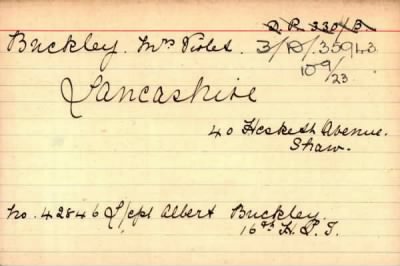 D.R. 330/B
Buckley. Mrs Violet. 3/D/35943
10 9/23.
Lancashire
40 Hesketh Avenue.
Shaw.
No. 42846 L/cpl Albert Buckley.
16th H.L.I.